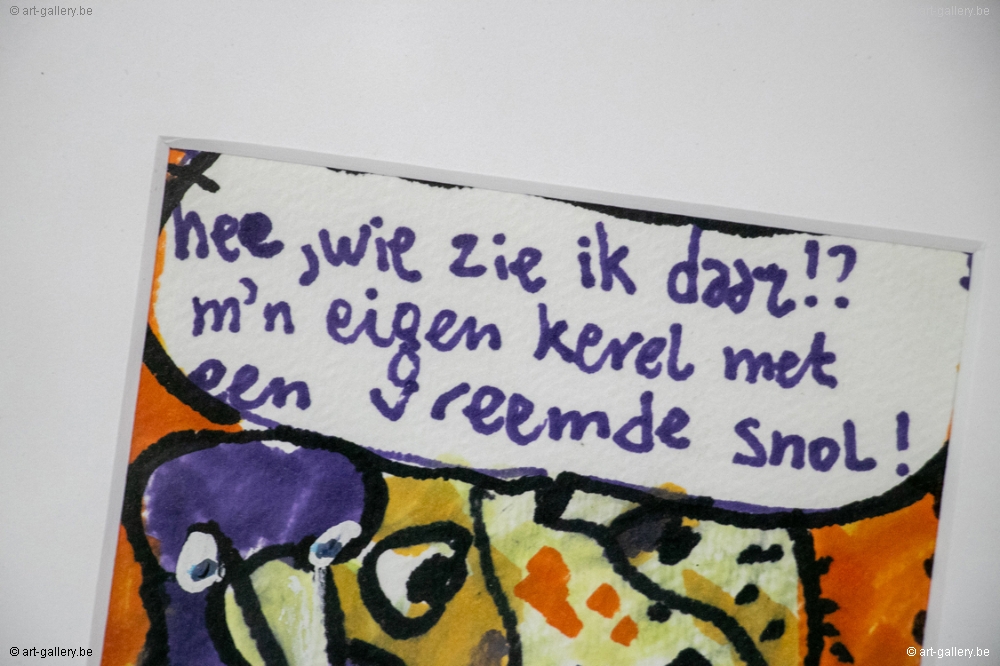 © art-gallery.be
© art-gallery.be
hee, wie zie ik daar!?
m'n eigen kerel met
een vreemde snol!
© art-gallery.be
© art-gallery.be